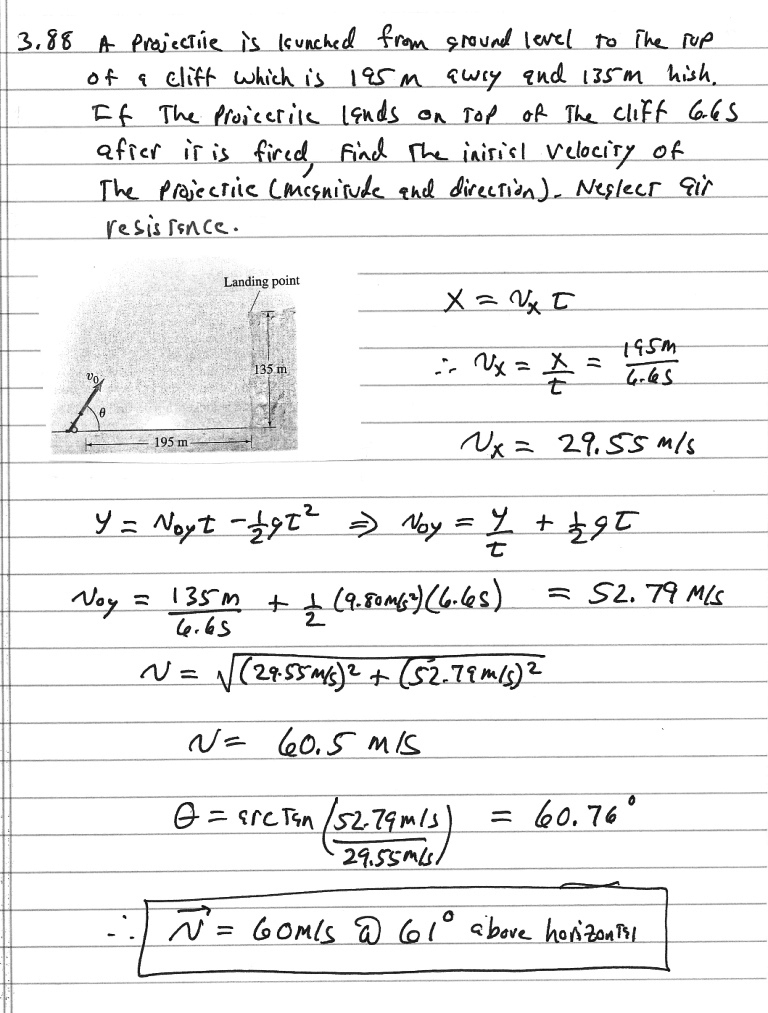 3.88 A projectile is launched from ground level to the top
of a cliff which is 195 m away and 135 m high.
If the projectile lands on top of the cliff 6.6 s
after it is fired, find the initial velocity of
the projectile (magnitude and direction). Neglect air
resistance.
Landing point
135 m
v₀
θ
195 m
x = vₓ t
∴ vₓ = x/t = 195m/6.6s
vₓ = 29.55 m/s
y = v₀yt - ½gt² ⇒ v₀y = y/t + ½gt
v₀y = 135m/6.6s + ½ (9.80m/s²)(6.6s) = 52.79 m/s
v = √((29.55m/s)² + (52.79m/s)²)
v = 60.5 m/s
θ = arctan (52.79m/s / 29.55m/s) = 60.76°
∴ v⃗ = 60m/s @ 61° above horizontal